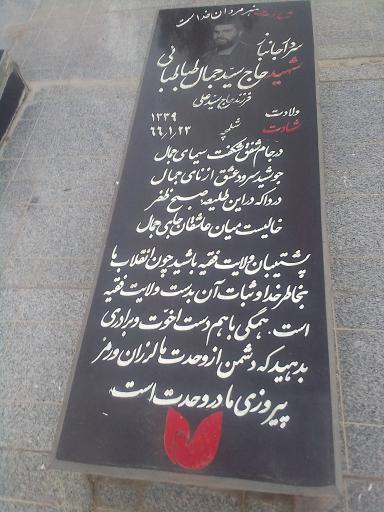 شهادت هنر مردان خداست
سردار جانباز
شهید حاج سید جمال طباطبائی
فرزند حاج سید علی
ولادت ۱۳۳۹
شهادت شلمچه ۶۶/۱/۲۳
در جام شفق شکفت سیمای جمال
جوشید سرود عشق از نای جمال
دردا که در این طلیعه صبح ظفر
خالیست میان عاشقان جای جمال
پشتیبان ولایت فقیه باشید چون انقلاب ما
بخاطر خدا و ثبات آن بدست ولایت فقیه
است. همگی با هم دست اخوت و برادری
بدهید که دشمن از وحدت ما لرزان و رمز
پیروزی ما در وحدت است